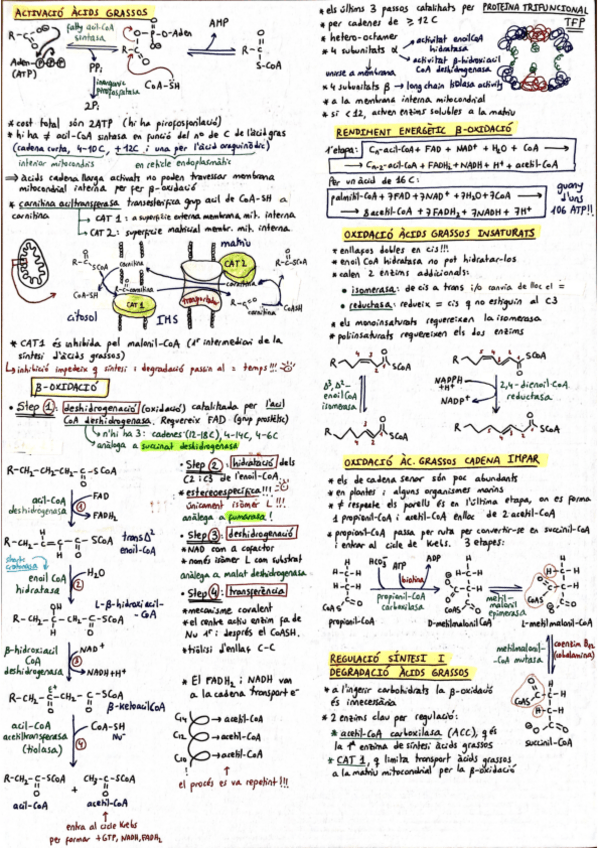 ACTIVACIÓ ÀCIDS GRASSOS
fatty acil-CoA
sintasa
R-C
P-O-Aden
AMP
Aden-P-P-P
(ATP)
PPi
inorganic
pirofosfatasa
2Pi
CoA-SH
R-C
S-CoA
* cost total són 2ATP (hi ha pirofosforilació)
* hi ha ≠ acil-CoA sintasa en funció del nº de C de l'àcid gras
(cadena curta, 4-10C, +12C i una per l'àcid araquinòdic)
interior mitocondris
en reticle endoplasmàtic
⇒ àcids cadena llarga activats no poden travessar membrana
mitocondrial interna per fer β-oxidació
* carnitina aciltransferasa transesterifica grup acil de CoA-SH a
carnitina
→ CAT 1: a superfície externa membrana mit. interna
→ CAT 2: superfície matricial membr. mit. interna
matriu
CAT2
R-C
SCoA
carnitina
R-C-carnitina
CoA-SH
CAT1
transportador
carnitina
CoASH
citosol
IMS
* CAT1 és inhibida pel malonil-CoA (1r intermediari de la
síntesi d'àcids grassos)
↳ inhibició impedeix q síntesi i degradació passin al = temps!!!
β-OXIDACIÓ
• Step 1: deshidrogenació (oxidació) catalitzada per l'acil
CoA deshidrogenasa. Requereix FAD (grup prostètic)
↳ n'hi ha 3: cadenes (12-18C), 4-14C, 4-6C
anàloga a succinat deshidrogenasa
R-CH2-CH2-CH2-C-SCoA
acil-CoA
deshidrogenasa
1
FAD
FADH2
R-CH2-C=C-C-SCoA
trans Δ2
enoil-CoA
enoil CoA
hidratasa
2
H2O
L-β-hidroxiacil-
-CoA
R-CH2-CH-CH2-C-SCoA
β-hidroxiacil
CoA
deshidrogenasa
3
NAD+
NADH+H+
R-CH2-C-CH2-C-SCoA
β-ketoacilCoA
acil-CoA
acetiltransferasa
(tiolasa)
4
CoA-SH
Nu-
R-CH2-C-SCoA + CH3-C-SCoA
acil-CoA
acetil-CoA
entra al cicle Krebs
per formar +GTP, NADH, FADH2
• Step 2: hidratació dels
C2 i C3 de l'enoil-CoA.
* estereoespecífica!!!
únicament isòmer L!!!
anàloga a fumarasa!
• Step 3: deshidrogenació
* NAD com a cofactor
* només isòmer L com substrat
anàloga a malat deshidrogenasa
• Step 4: transferència
* mecanisme covalent
* el centre actiu enzim fa de
Nu 1r i després el CoASH.
* tiòlisi d'enllaç C-C
* El FADH2 i NADH van
a la cadena transport e-
C14 → acetil-CoA
C12 → acetil-CoA
C10 → acetil-CoA
el procés es va repetint!!!
* els últims 3 passos catalitzats per PROTEINA TRIFUNCIONAL
TFP
* per cadenes de ≥ 12 C
* hetero-octamer
* 4 subunitats α
activitat enoilCoA
hidratasa
activitat β-hidroxiacil
CoA deshidrogenasa
unirse a membrana
* 4 subunitats β → long chain tiolasa activity
* a la membrana interna mitocondrial
* si < 12, actuen enzims solubles a la matriu
RENDIMENT ENERGÈTIC β-OXIDACIÓ
1ª etapa: Cn-acil-CoA + FAD + NAD+ + H2O + CoA →
Cn-2-acil-CoA + FADH2 + NADH + H+ + acetil-CoA
Per un àcid de 16C:
palmitil-CoA + 7FAD + 7NAD+ + 7H2O + 7CoA
→ 8 acetil-CoA + 7 FADH2 + 7NADH + 7H+
guany
d'uns
106 ATP!!
OXIDACIÓ ÀCIDS GRASSOS INSATURATS
* enllaços dobles en cis!!!
* enoil CoA hidratasa no pot hidratar-los
* calen 2 enzims addicionals:
• isomerasa: de cis a trans i/o canvia de lloc el =
• reductasa: redueix = cis q no estiguin al C3
* els monoinsaturats requereixen la isomerasa
* poliinsaturats requereixen els dos enzims
SCoA
Δ3, Δ2-
enoil CoA
isomerasa
SCoA
SCoA
NADPH
+H+
NADP+
2,4-dienoil-CoA
reductasa
SCoA
OXIDACIÓ ÀC. GRASSOS CADENA IMPAR
* els de cadena senar són poc abundants
* en plantes i alguns organismes marins
* ≠ respecte els parells és en l'última etapa, on es forma
1 propionil-CoA i acetil-CoA enlloc de 2 acetil-CoA
* propionil-CoA passa per ruta per convertir-se en succinil-CoA
i entrar al cicle de Krebs. 3 etapes:
HCO3-
ATP
ADP
biotina
propionil-CoA
carboxilasa
CoAS
propionil-CoA
D-metilmalonil CoA
metil-
malonil
epimerasa
L-metilmalonil-CoA
metilmalonil-
-CoA mutasa
coenzim B12
(cobalamina)
succinil-CoA
REGULACIÓ SÍNTESI I
DEGRADACIÓ ÀCIDS GRASSOS
* a l'ingerir carbohidrats la β-oxidació
és innecessària
* 2 enzims clau per regulació:
* acetil-CoA carboxilasa (ACC), q és
la 1ª enzima de síntesi àcids grassos
* CAT 1, q limita transport àcids grassos
a la matriu mitocondrial per la β-oxidació